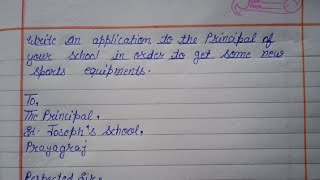 Write an application to the Principal of
your school in order to get some new
sports equipments.
To,
The Principal,
St. Joseph's School,
Prayagraj
Respected Sir,